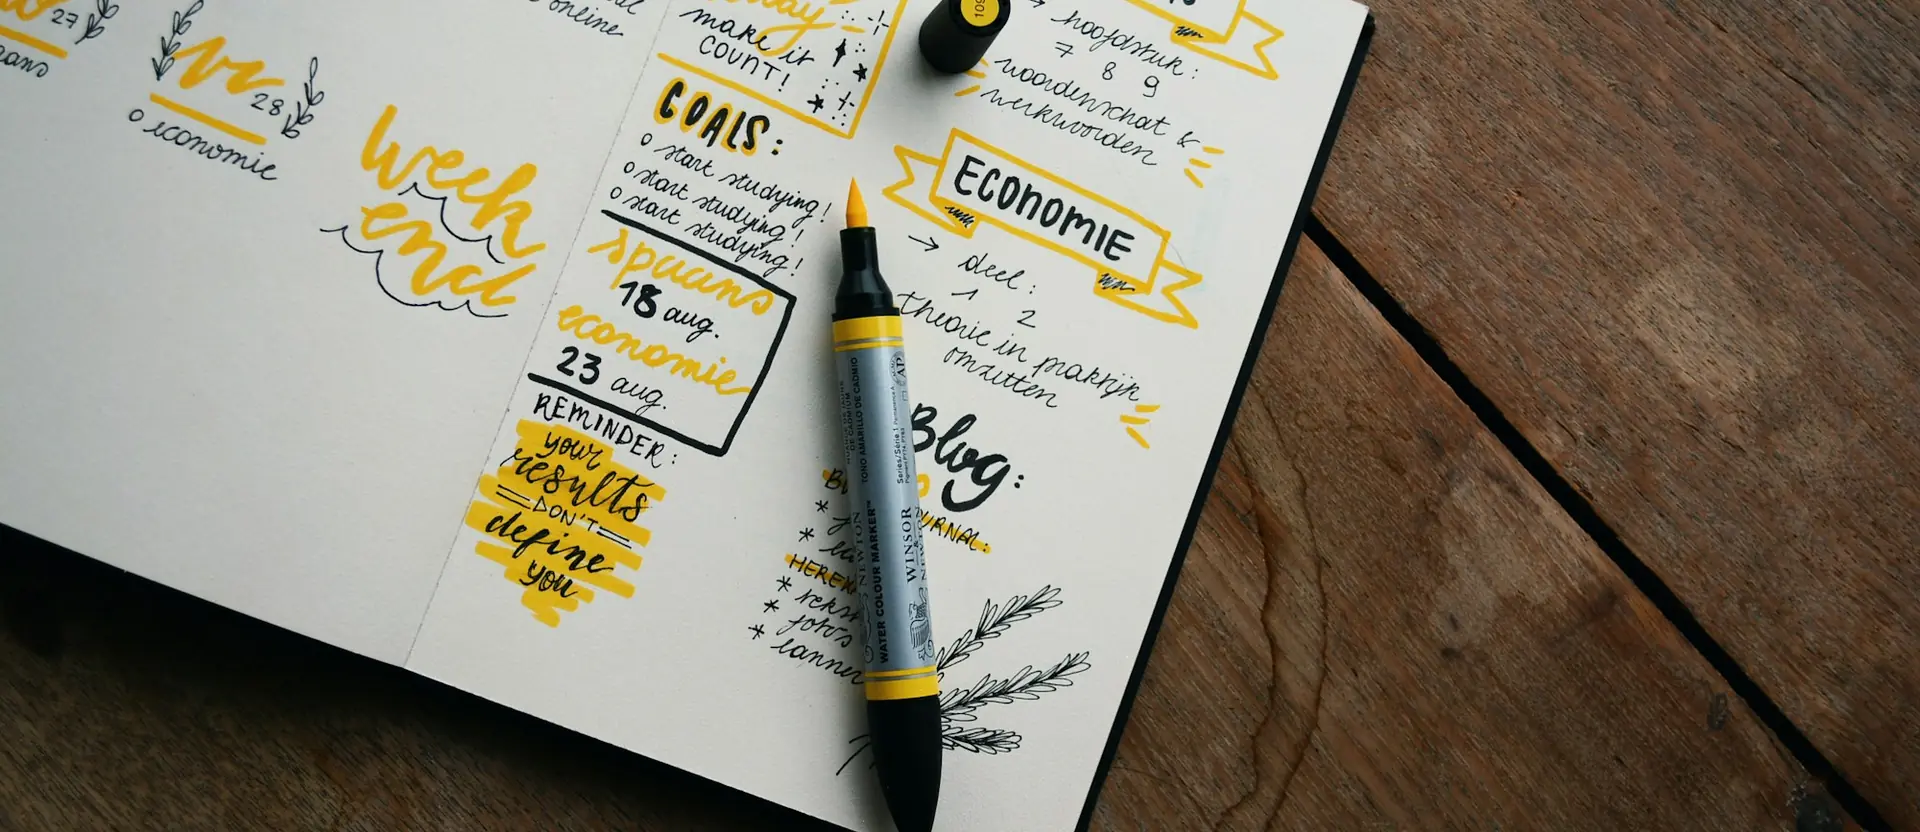 27
vr
28
o economie
online
week
end
make it
COUNT!
GOALS:
o start studying!
o start studying!
o start studying!
spaans
18 aug.
economie
23 aug.
REMINDER:
your
results
DON'T
define
you
109
→ hoofdstuk:
7 8 9
woordenschat &
werkwoorden
ECONOMIE
→ deel:
1
2
theorie in praktijk
omzetten
Blog:
*
*
*
*
foto's
*
WINSOR
& NEWTON
WATER COLOUR MARKER™
Series/Série 1
TONO AMARILLO DE CADMIO
DE CADMIUM
AP